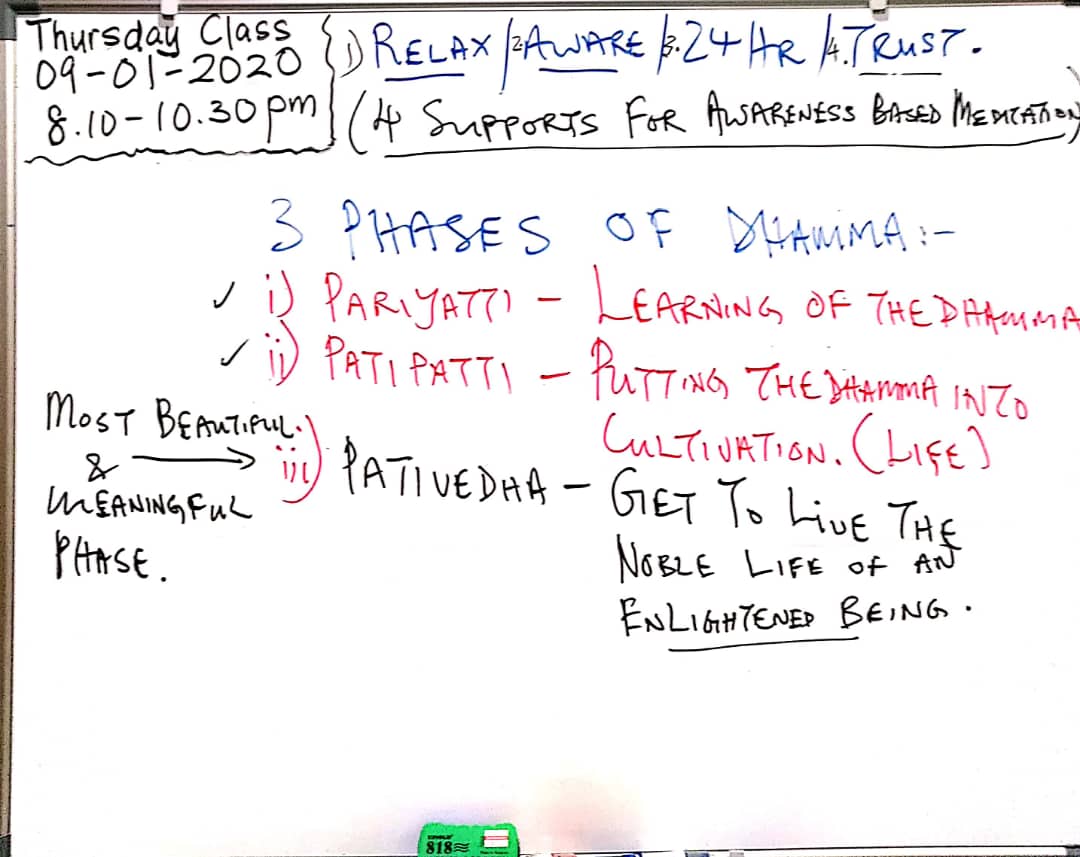 Thursday Class
09-01-2020
8.10-10.30pm
1) RELAX /2.AWARE /3.24 HR /4.TRUST.
(4 SUPPORTS FOR AWARENESS BASED MEDITATION)
3 PHASES OF DHAMMA:-
✓ i) PARIYATTI - LEARNING OF THE DHAMMA
✓ ii) PATIPATTI - PUTTING THE DHAMMA INTO
CULTIVATION. (LIFE)
MOST BEAUTIFUL.
&
MEANINGFUL
PHASE.
→ iii) PATIVEDHA - GET TO LIVE THE
NOBLE LIFE OF AN
ENLIGHTENED BEING.
818